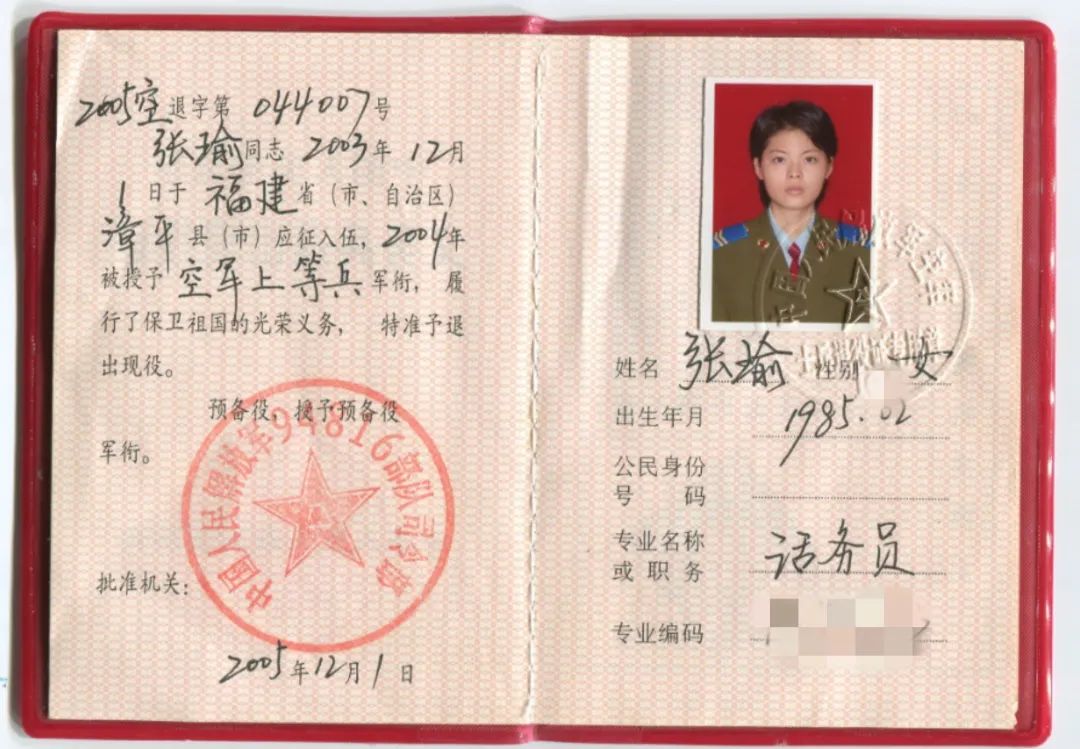 2005空退字第 044007号
张瑜同志 2003年 12月
1 日于 福建 省（市、自治区）
漳平县（市）应征入伍，2004年
被授予 空军上等兵 军衔， 履
行了保卫祖国的光荣义务， 特准予退
出现役。
预备役，授予预备役
军衔。
中国人民解放军94816部队司令部
批准机关：
2005年12月1日
姓名 张瑜 性别 女
出生年月 1985.02
公民身份
号 码
专业名称
或 职 务 话务员
专业编码